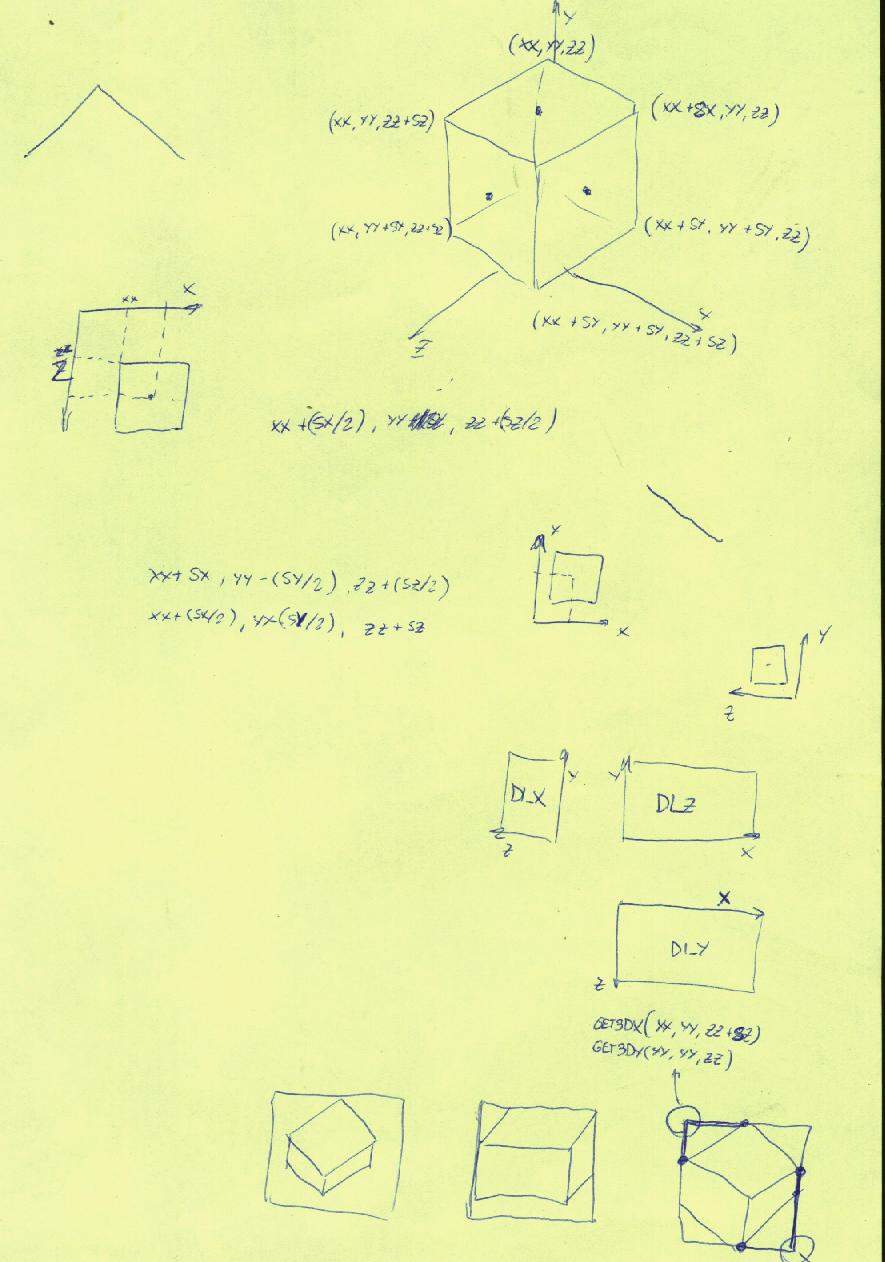 Y
(XX, YY, ZZ)
(XX, YY, ZZ+SZ)
(XX+SX, YY, ZZ)
(XX, YY+SY, ZZ+SZ)
(XX+SX, YY+SY, ZZ)
(XX+SX, YY+SY, ZZ+SZ)
Z
X
XX
X
Z
XX+(SX/2), YY, ZZ+(SZ/2)
XX+SX, YY-(SY/2), ZZ+(SZ/2)
XX+(SX/2), YY-(SY/2), ZZ+SZ
Y
X
Y
Z
DLX
Y
Z
Y
DLZ
X
X
DLY
Z
GET3DX(XX, YY, ZZ+SZ)
GET3DY(XX, YY, ZZ)